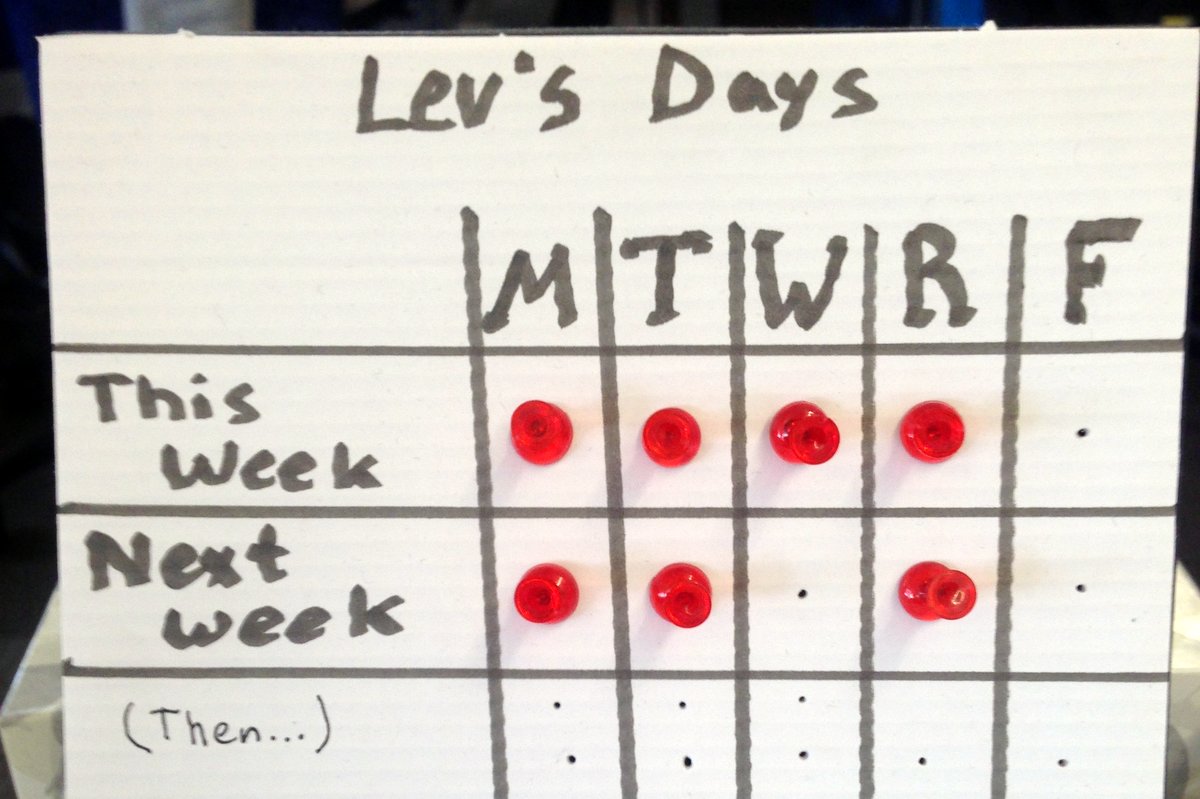 Lev's Days
M T W R F
This
Week
Next
week
(Then...)